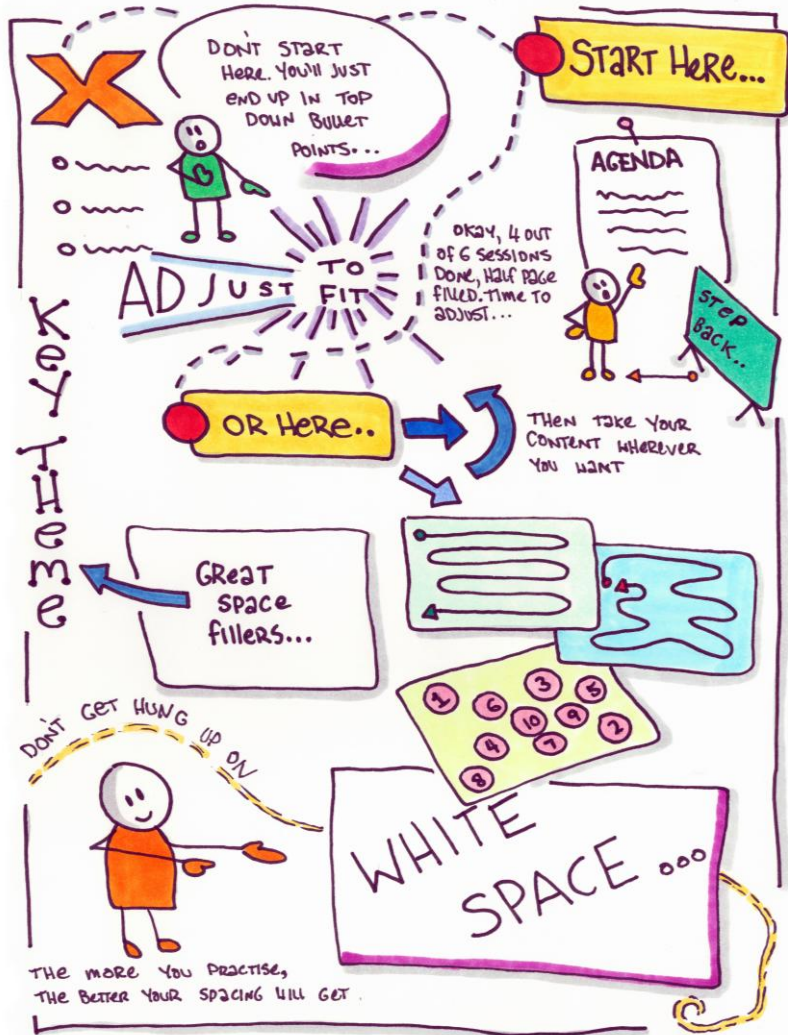 DON'T START
HERE. YOU'LL JUST
END UP IN TOP
DOWN BULLET
POINTS...
START HERE...
AGENDA
ADJUST TO
FIT
OKAY, 4 OUT
OF 6 SESSIONS
DONE, HALF PAGE
FILLED. TIME TO
ADJUST...
STEP
BACK..
KEY THEME
OR HERE..
THEN TAKE YOUR
CONTENT WHEREVER
YOU WANT
GREAT
SPACE
FILLERS...
1
6
3
5
4
10
9
2
8
7
DON'T GET HUNG UP ON
WHITE
SPACE...
THE MORE YOU PRACTISE,
THE BETTER YOUR SPACING WILL GET.